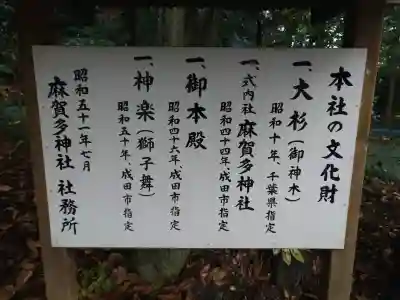 本社の文化財
一、大杉（御神木）
昭和十年、千葉県指定
一、式内社 麻賀多神社
昭和四十四年、成田市指定
一、御本殿
昭和四十六年、成田市指定
一、神楽（獅子舞）
昭和五十年、成田市指定
昭和五十一年七月
麻賀多神社 社務所